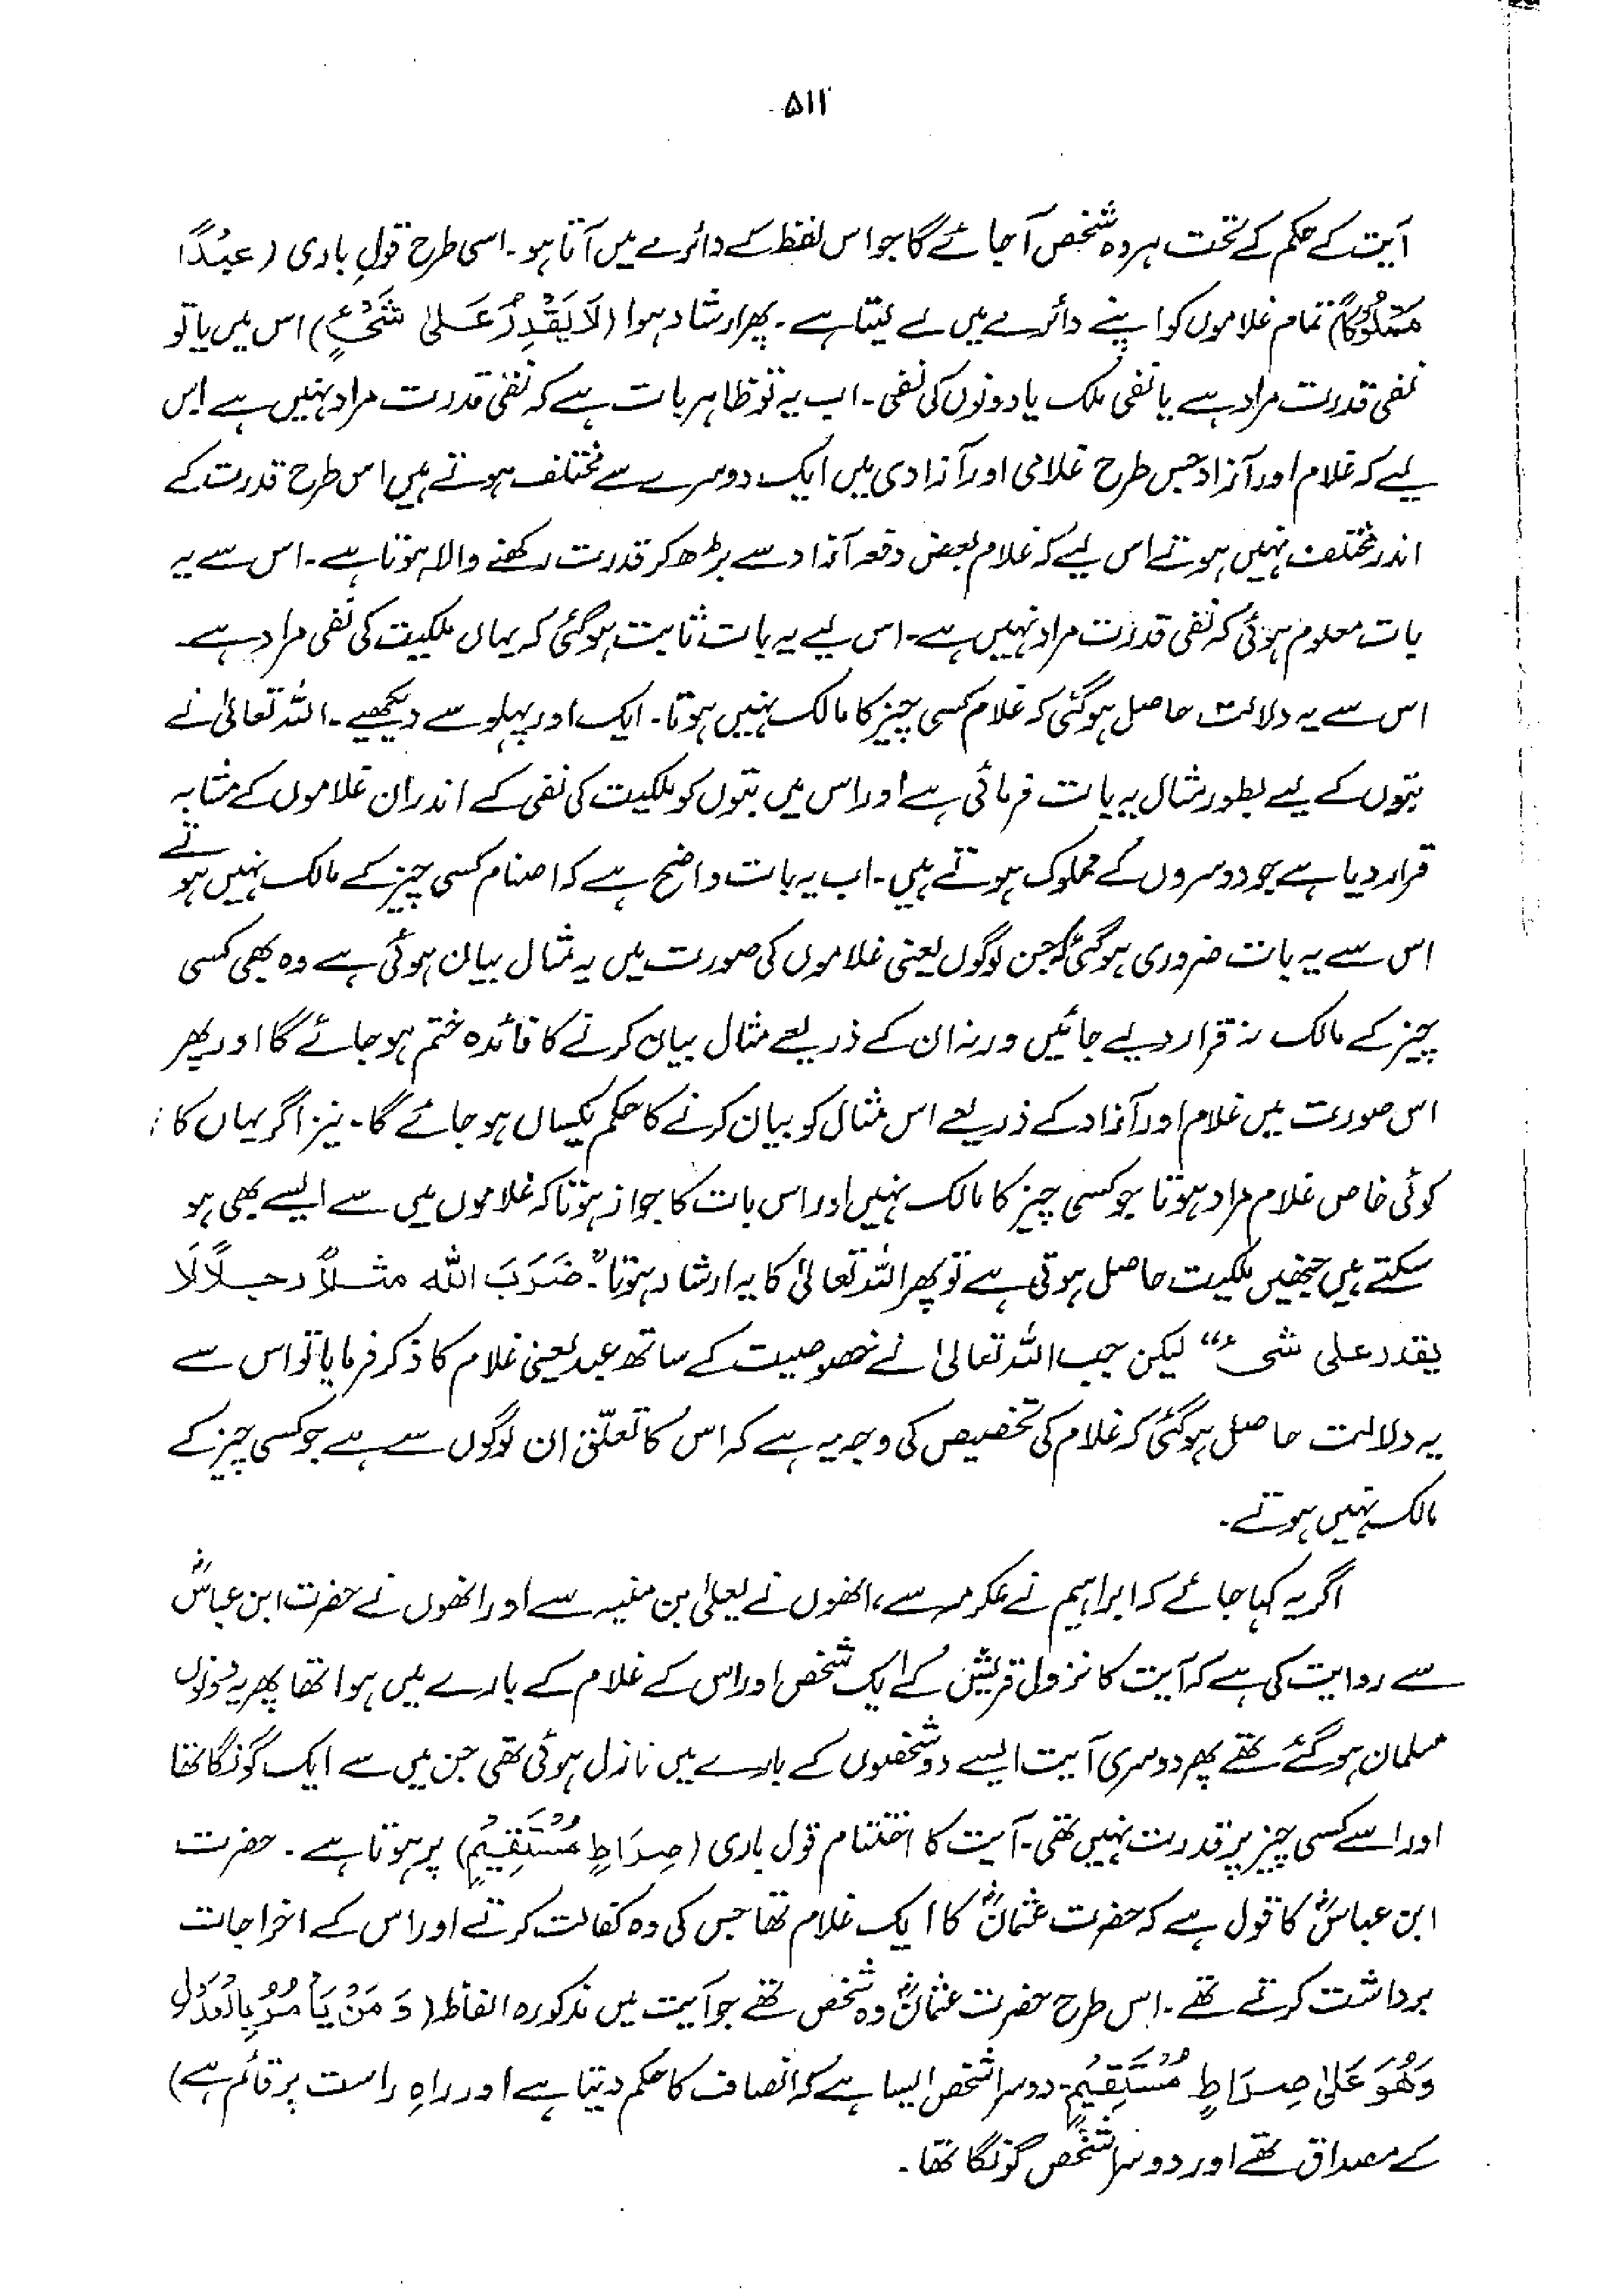 ۵۱۱
آیت کے حکم کے تحت ہر وہ شخص آجائے گا جو اس لفظ کے دائرے میں آتا ہو۔ اسی طرح قولِ باری (عَبْدًا
مَمْلُوْكًا) تمام غلاموں کو اپنے دائرے میں لے لیتا ہے۔ پھر ارشاد ہوا (لَا يَقْدِرُ عَلٰى شَيْءٍ) اس میں یا تو
نفی قدرت مراد ہے یا نفی ملک یا دونوں کی نفی۔ اب یہ تو ظاہر بات ہے کہ نفی قدرت مراد نہیں ہے اس
لیے کہ غلام اور آزاد جس طرح غلامی اور آزادی میں ایک دوسرے سے مختلف ہوتے ہیں اس طرح قدرت کے
اندر مختلف نہیں ہوتے اس لیے کہ غلام بعض دفعہ آزاد سے بڑھ کر قدرت رکھنے والا ہوتا ہے۔ اس سے یہ
بات معلوم ہوئی کہ نفی قدرت مراد نہیں ہے۔ اس لیے یہ بات ثابت ہوگئی کہ یہاں ملکیت کی نفی مراد ہے۔
اس سے یہ دلالت حاصل ہوگئی کہ غلام کسی چیز کا مالک نہیں ہوتا۔ ایک اور پہلو سے دیکھیے۔ اللہ تعالیٰ نے
بتوں کے لیے بطور مثال یہ بات فرمائی ہے اور اس میں بتوں کو ملکیت کی نفی کے اندر ان غلاموں کے مشابہ
قرار دیا ہے جو دوسروں کے مملوک ہوتے ہیں۔ اب یہ بات واضح ہے کہ اصنام کسی چیز کے مالک نہیں ہوتے
اس سے یہ بات ضروری ہوگئی کہ جن لوگوں یعنی غلاموں کی صورت میں یہ مثال بیان ہوئی ہے وہ بھی کسی
چیز کے مالک نہ قرار دیے جائیں ورنہ ان کے ذریعے مثال بیان کرنے کا فائدہ ختم ہو جائے گا اور پھر
اس صورت میں غلام اور آزاد کے ذریعے اس مثال کو بیان کرنے کا حکم یکساں ہو جائے گا۔ نیز اگر یہاں کا
کوئی خاص غلام مراد ہوتا جو کسی چیز کا مالک نہیں اور اس بات کا جواز ہوتا کہ غلاموں میں سے ایسے بھی ہو
سکتے ہیں جنھیں ملکیت حاصل ہوتی ہے تو پھر اللہ تعالیٰ کا یہ ارشاد ہوتا "ضَرَبَ اللّٰه مثلاً رجلاً لَا
يقدر على شيء" لیکن جب اللہ تعالیٰ نے خصوصیت کے ساتھ عبد یعنی غلام کا ذکر فرمایا تو اس سے
یہ دلالت حاصل ہوگئی کہ غلام کی تخصیص کی وجہ یہ ہے کہ اس کا تعلّق ان لوگوں سے ہے جو کسی چیز کے
مالک نہیں ہوتے۔
اگر یہ کہا جائے کہ ابراہیم نے عکرمہ سے، انھوں نے یعلیٰ بن منیہ سے اور انھوں نے حضرت ابن عباسؓ
سے روایت کی ہے کہ آیت کا نزول قریش کے ایک شخص اور اس کے غلام کے بارے میں ہوا تھا پھر یہ دونوں
مسلمان ہوگئے تھے پھر دوسری آیت ایسے دو شخصوں کے بارے میں نازل ہوئی تھی جن میں سے ایک گونگا تھا
اور اسے کسی چیز پر قدرت نہیں تھی۔ آیت کا اختتام قول باری (صِرَاطٍ مُّسْتَقِيْمٍ) پر ہوتا ہے۔ حضرت
ابن عباسؓ کا قول ہے کہ حضرت عثمانؓ کا ایک غلام تھا جس کی وہ کفالت کرتے اور اس کے اخراجات
برداشت کرتے تھے۔ اس طرح حضرت عثمانؓ وہ شخص تھے جو آیت میں مذکورہ الفاظ (وَ مَنْ يَأْمُرُ بِالْعَدْلِ
وَهُوَ عَلٰى صِرَاطٍ مُّسْتَقِيْمٍ۔ دوسرا شخص ایسا ہے کہ انصاف کا حکم دیتا ہے اور راہِ راست پر قائم ہے)
کے مصداق تھے اور دوسرا شخص گونگا تھا۔